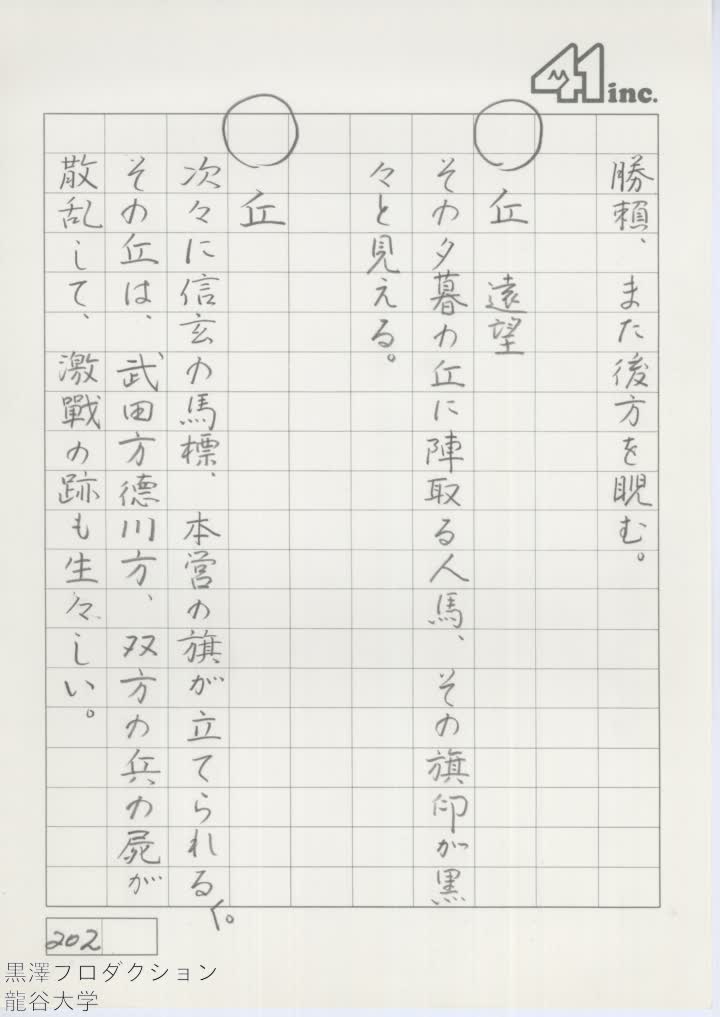 41 inc.
勝頼、また後方を睨む。
○丘 遠望
その夕暮の丘に陣取る人馬、その旗印が黒
々と見える。
○丘
次々に信玄の馬標、本営の旗が立てられる。
その丘は、武田方德川方、双方の兵の屍が
散乱して、激戰の跡も生々しい。
202
黒澤フロダクション
龍谷大学